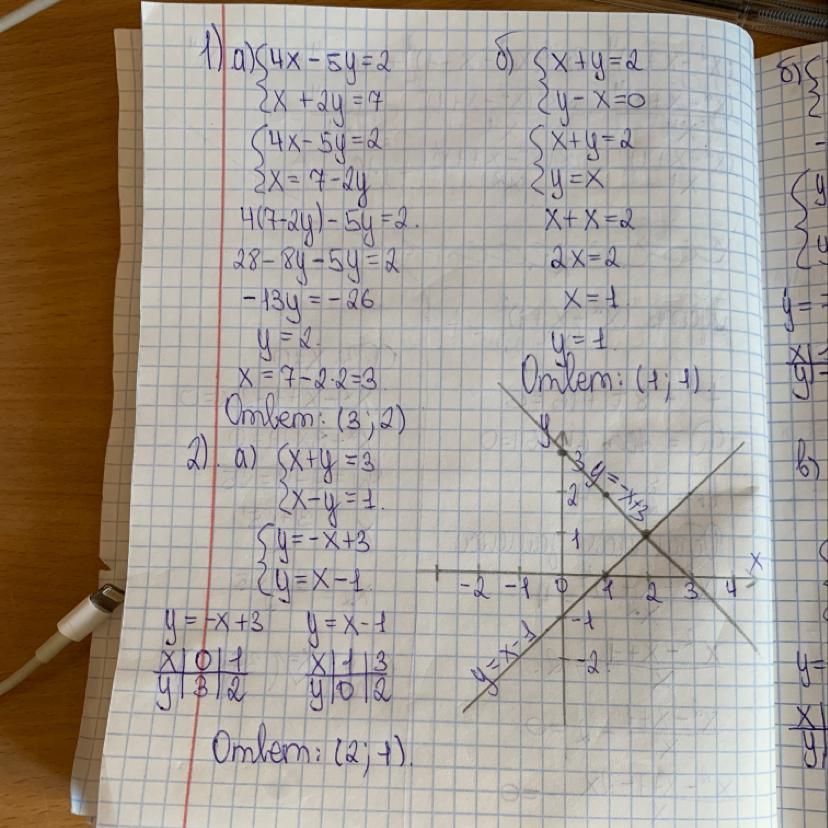 1) а) {4x - 5y = 2
{x + 2y = 7
{4x - 5y = 2
{x = 7 - 2y
4(7-2y) - 5y = 2.
28 - 8y - 5y = 2
-13y = -26
y = 2.
x = 7 - 2·2 = 3.
Ответ: (3; 2)
б) {x + y = 2
{y - x = 0
{x + y = 2
{y = x
x + x = 2
2x = 2
x = 1.
y = 1.
Ответ: (1; 1).
2). а) {x + y = 3
{x - y = 1.
{y = -x + 3
{y = x - 1.
y = -x + 3 y = x - 1
x | 0 | 1 x | 1 | 3
y | 3 | 2 y | 0 | 2
y
3
y = -x + 3
2
1
x
-2 -1 0 1 2 3 4
-1
y = x - 1
-2
Ответ: (2; 1).
б) {
{y
y =
x
y
в)
y =
x
y